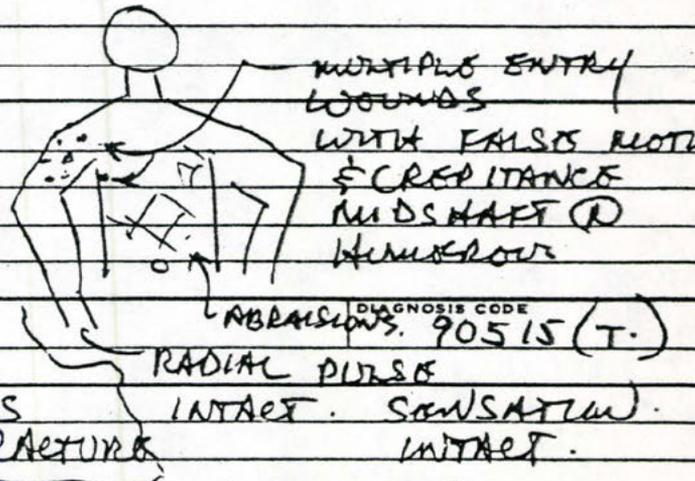 MULTIPLE ENTRY
WOUNDS
WITH FALSE MOTI
& CREPITANCE
MIDSHAFT Ⓡ
HUMEROUS
ABRAISIONS.
DIAGNOSIS CODE
90515 (T.)
RADIAL PULSE
INTACT. SENSATION.
INTACT.
S
RACTURE